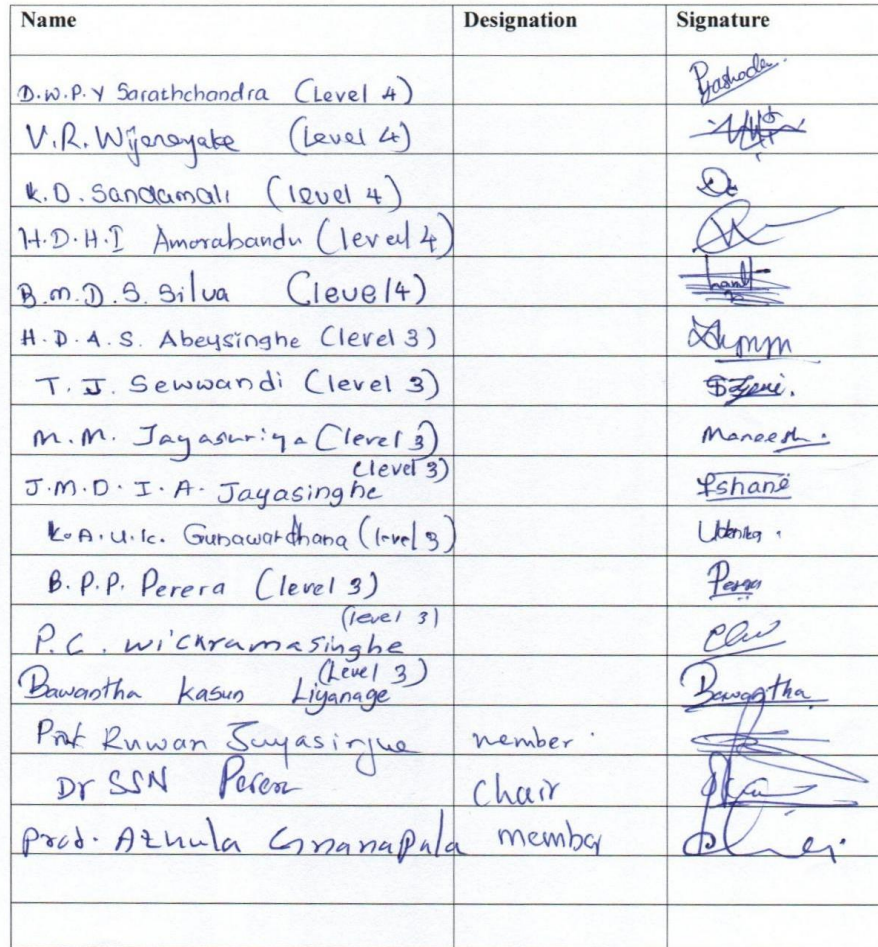 Name Designation Signature
D.W.P.Y Sarathchandra (Level 4) Yashoda
V.R. Wijenayake (Level 4)
K.D. Sandamali (level 4)
H.D.H.I Amarabandu (level 4)
B.M.D.S. Silva (level 4)
H.D.A.S. Abeysinghe (level 3)
T.J. Sewwandi (level 3)
M.M. Jayasuriya (level 3) Maneesh.
(level 3)
J.M.D.I.A. Jayasinghe Ishani
K.A.U.K. Gunawardhana (level 3)
B.P.P. Perera (level 3)
(level 3)
P.C. Wickramasinghe
(Level 3)
Bawantha Kasun Liyanage Bawantha
Ruwan member
Dr SSN Perera chair
Gnanapala member